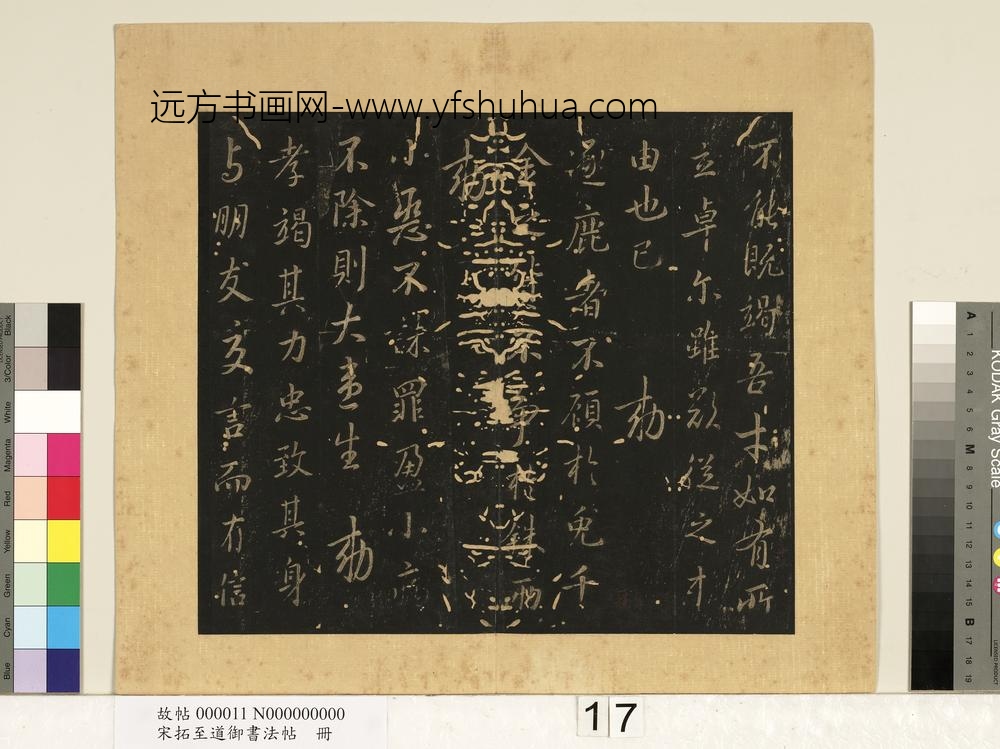 远方书画网-www.yfshuhua.com
不能既竭吾才如有所
立卓尔雖欲從之才
由也已 勅
逐鹿者不顧於兎千
金之 不爭於銖兩
勅
小惡不 罪盈小疵
不除則大患生 勅
孝竭其力忠致其身
与朋友交言而有信
故帖 000011 N000000000
宋拓至道御書法帖 冊
17
Black
3/Color
White
Magenta
Red
Yellow
Green
Cyan
Blue
KODAK Gray Scale
A 1 2 3 4 5 6 M 8 9 10 11 12 13 14 15 B 17 18 19